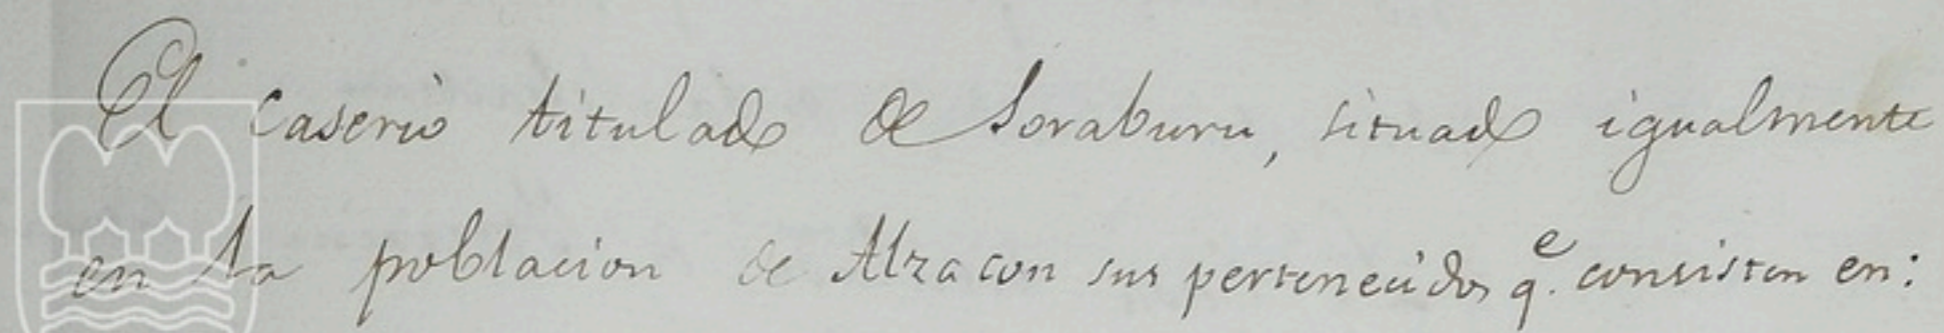 El caserio titulado de Soraburu, situado igualmente
en la poblacion de Alza con sus pertenecidos q.e consisten en: